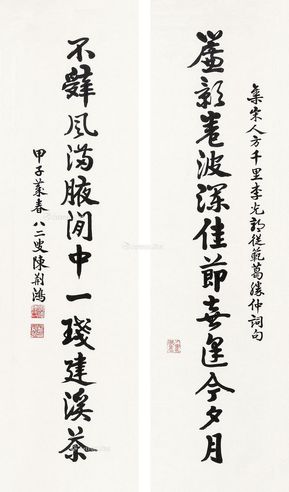 集宋人方千里李光郭從範葛勝仲詞句
簾影卷波深佳節喜逢今夕月
不辭風滿腋閒中一琖建溪茶
甲子暮春八二叟陳荆鴻